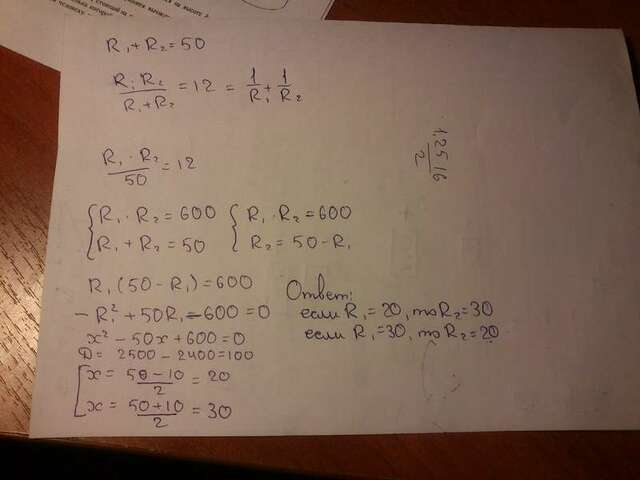 R₁ + R₂ = 50
R₁ · R₂ / R₁ + R₂ = 12 = 1/R₁ + 1/R₂
R₁ · R₂ / 50 = 12
{ R₁ · R₂ = 600 { R₁ · R₂ = 600
R₁ + R₂ = 50 R₂ = 50 - R₁
R₁ (50 - R₁) = 600
- R₁² + 50R₁ - 600 = 0
x² - 50x + 600 = 0
D = 2500 - 2400 = 100
[ x = 50 - 10 / 2 = 20
x = 50 + 10 / 2 = 30
Ответ:
если R₁ = 20, то R₂ = 30
если R₁ = 30, то R₂ = 20